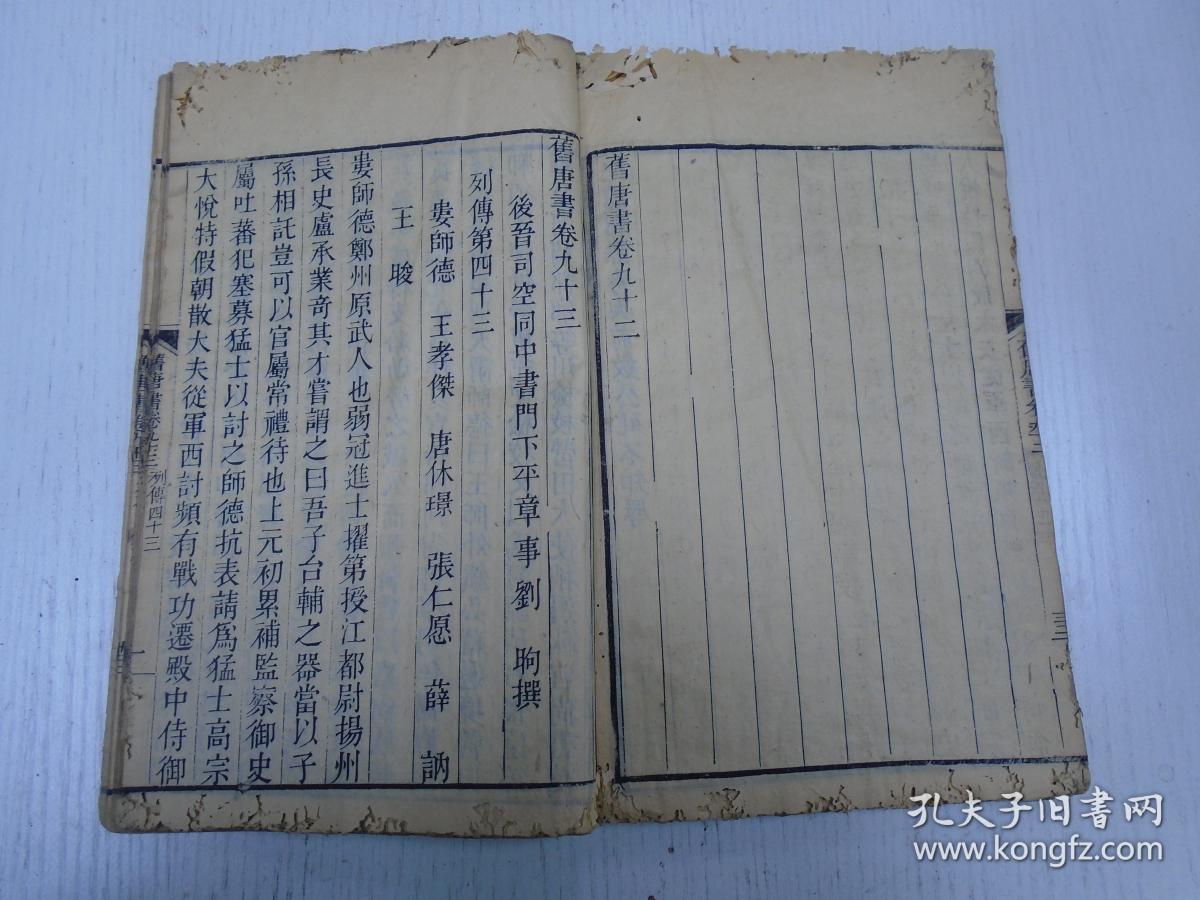 舊唐書卷九十二
舊唐書卷九十三
後晉司空同中書門下平章事劉 昫撰
列傳第四十三
婁師德 王孝傑 唐休璟 張仁愿 薛 訥
王 晙
婁師德鄭州原武人也弱冠進士擢第授江都尉揚州
長史盧承業奇其才嘗謂之曰吾子台輔之器當以子
孫相託豈可以官屬常禮待也上元初累補監察御史
屬吐蕃犯塞募猛士以討之師德抗表請爲猛士高宗
大悅特假朝散大夫從軍西討頻有戰功遷殿中侍御
舊唐書卷九十三 列傳四十三
一
孔夫子旧书网
www.kongfz.com